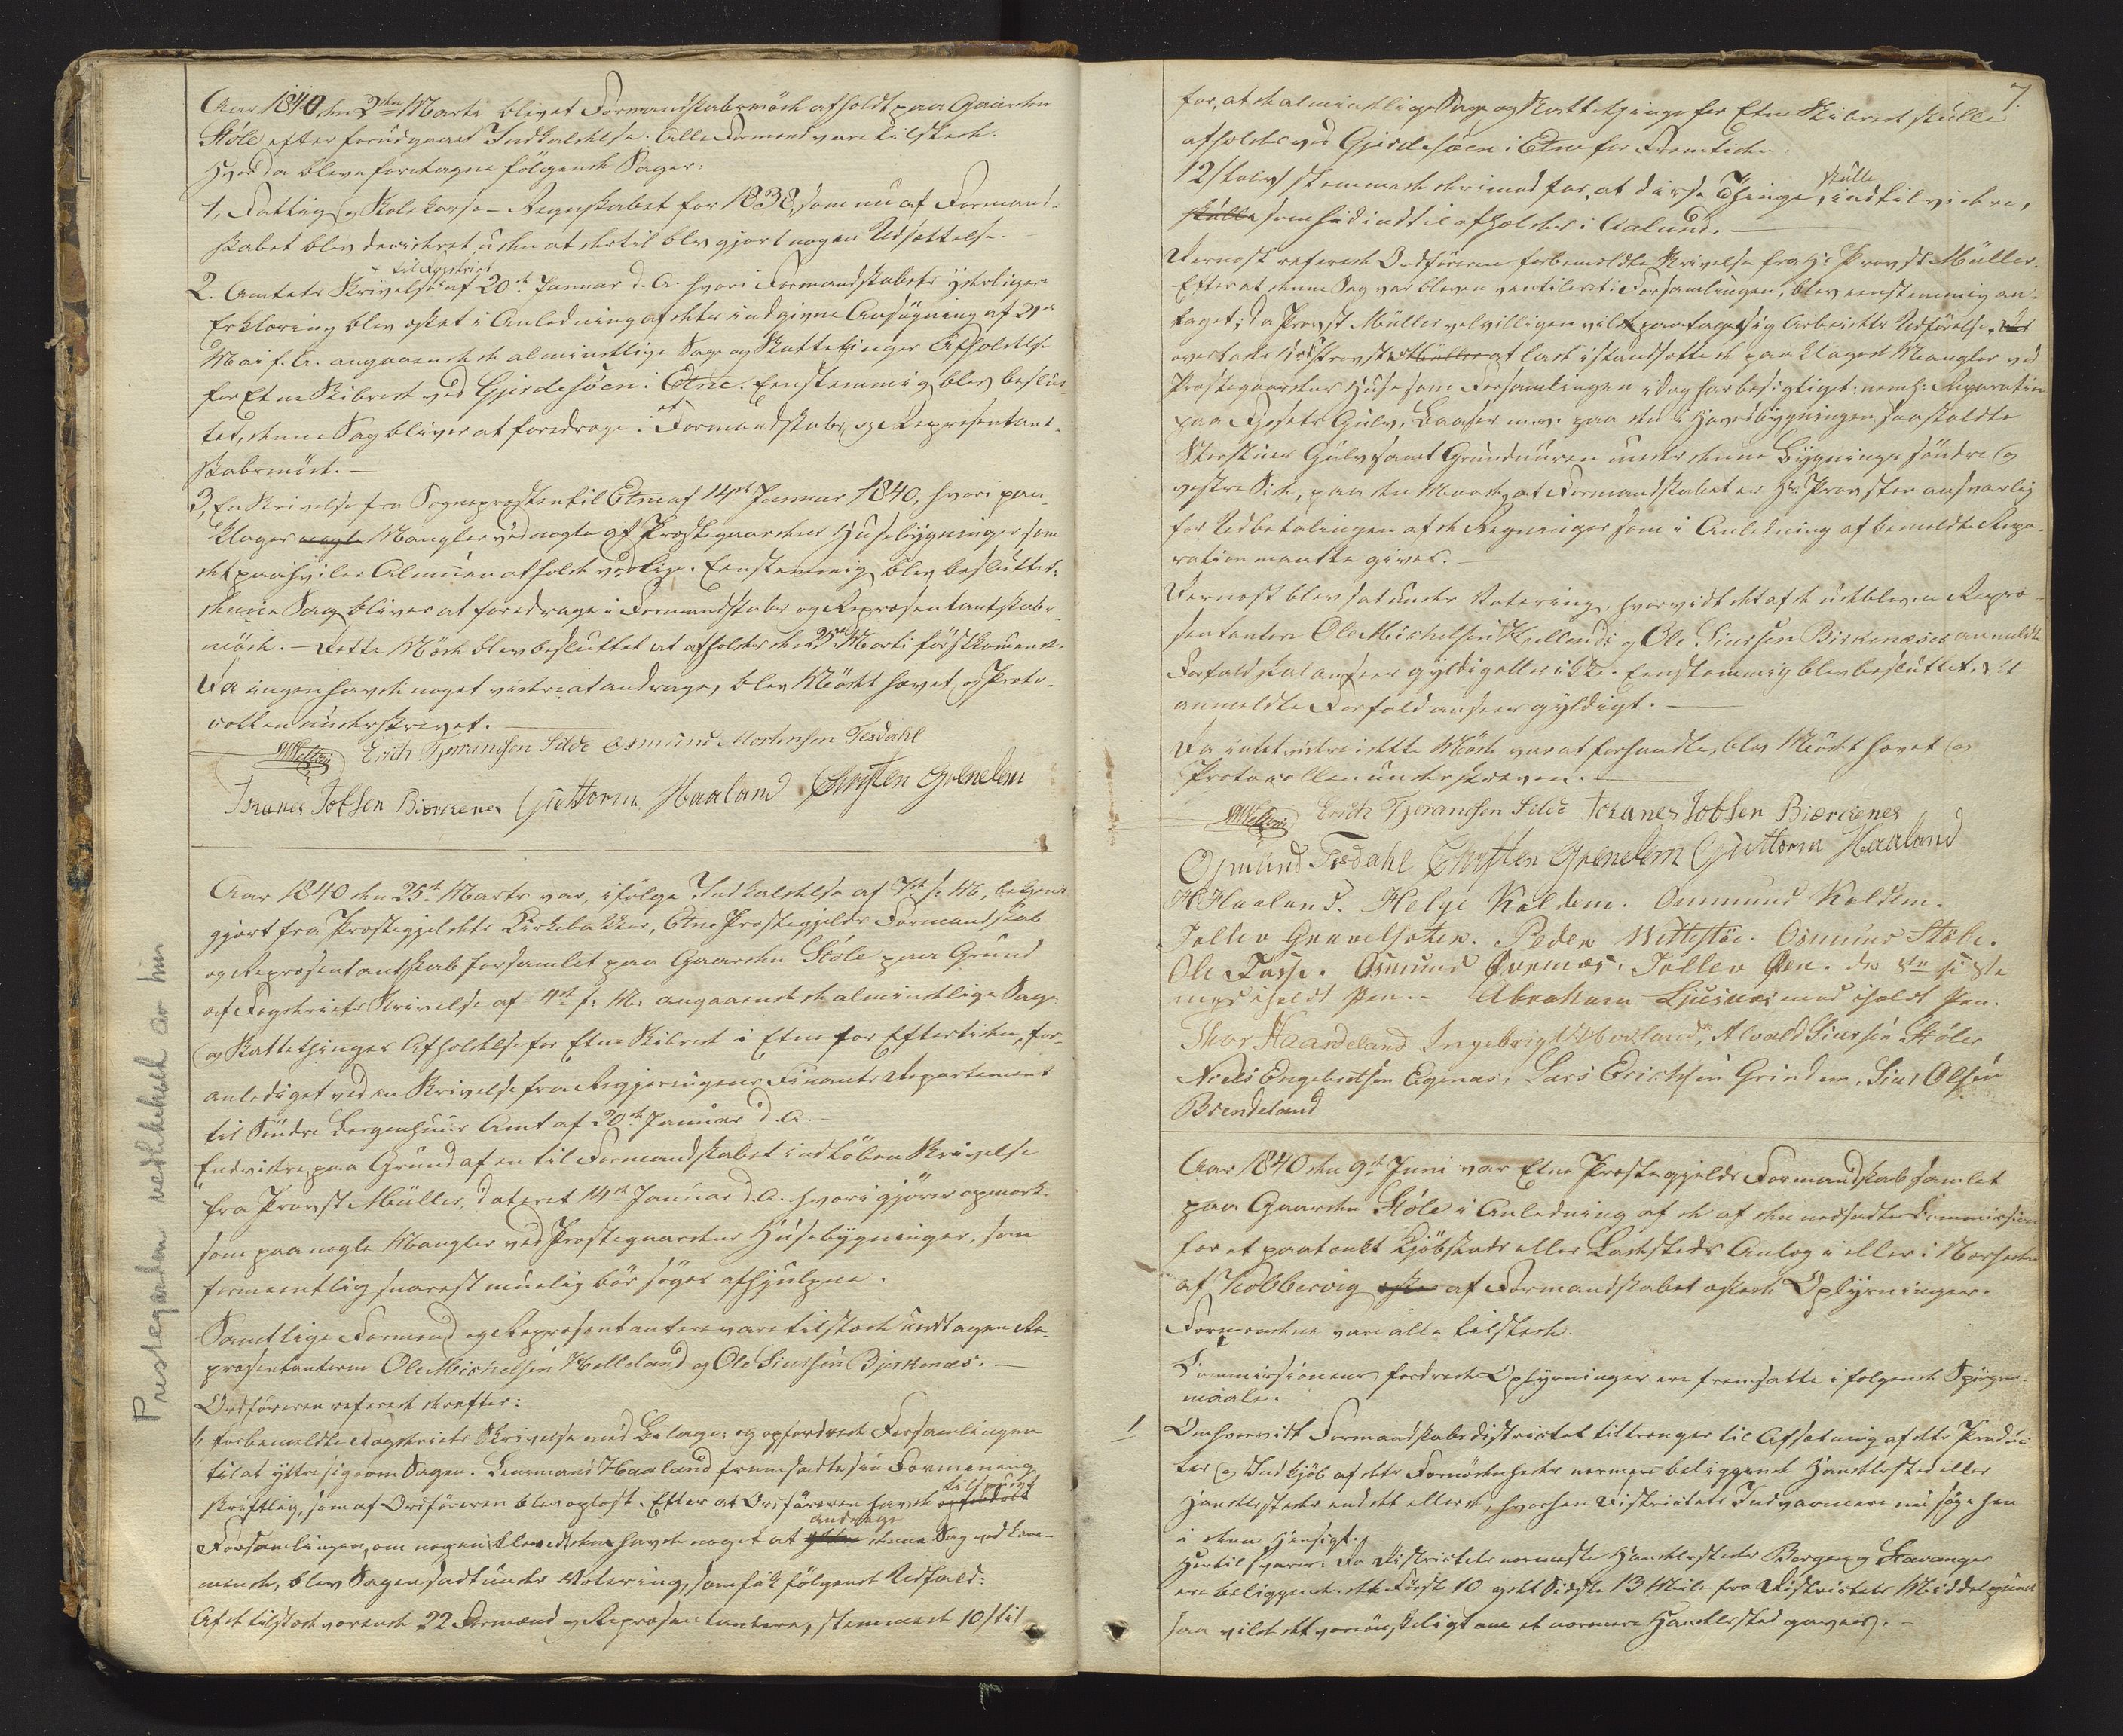 Aar 1840, den 2den Marti blivet Formandskabsmöde afholdt paa Gaarden
Støle efter forudgaaet Indkaldelse. Alle Formænd vare tilstede.
Hvorda bleve foretagne følgende Sager:
1, Fattig og Skolekasse-Regnskabet for 1838, som nu af Formand-
skabet blev decideret uden at dertil blev gjort nogen Udsættelse.
til Fogderiet
2. Amtets Skrivelse af 20de Januar d. A. hvori Formandskabets yderligere
Erklæring blev æsket i Anledning af dets indgivne Ansøgning af 21de
Mai f. A. angaaende de almindelige Sage og Skattetinges Afholdelse
for Etne Skibrede ved Gjerdesöen i Etne. Eenstemmig blev beslut-
tet, denne Sag bliver at foredrage i et Formandskabs og Repræsentant-
skabsmöde. —
3, En Skrivelse fra Sognepræsten til Etne af 14de Januar 1840, hvori paa-
klages nogle Mangler ved nogle af Præstegaardens Huusebygninger som
det paahviler Almuen at holde vedlige. Eenstemmig blev besluttet:
denne Sag bliver at foredrage i Formandskabs og Repræsentantskabs-
möde. — Dette Möde blev besluttet at afholdes den 25de Marti förstkomende.
Da ingen havde noget videre at andrage, blev Mödet hævet og Proto-
collen underskrevet.
Erich Tjerandsen Silde Osmund Mortensen Tesdahl
Johanes Jobsen Biørkenes Guttorm Haaland Chrysten Grenelem
Aar 1840 den 25de Marts var, ifölge Indkaldelse af 7de s. M., bekjendt-
gjort fra Præstegjeldets Kirkebakker, Etne Præstegjelds Formandskab
og Repræsentantskab forsamlet paa Gaarden Støle paa Grund
af Fogderiets Skrivelse af 4de f. M. angaaende de almindelige Sage
og Skattethinges Afholdelse for Etne Skibrede i Etne for Eftertiden, for-
anlediget ved en Skrivelse fra Regjeringens Finants Departement
til Söndre Bergenhuus Amt af 20de Januar d. A. —
Endvidere paa Grund af en til Formandskabet indlöben Skrivelse
fra Provst Müller, dateret 14de Januar d. A. hvori gjöres opmærk-
som paa nogle Mangler ved Præstegaardens Huusebygninger, som
formeentlig snarest muelig bör söges afhjulpne.
Samtlige Formænd og Repræsentantere vare tilstede undtagen Re-
præsentanterne Ole Michelsen Helleland og Ole Siursen Bjerkenæs. —
Ordföreren refererede derefter:
1, forbemeldte Fogderiets Skrivelse med Bilage; og opfordrede Forsamlingen
til at yttre sig om Sagen. Leensmand Haaland fremsadte sin Formening
skriftlig, som af Ordföreren blev oplæst. Efter at Ordföreren havde tilspurgt
Forsamlingen, om nogen iblandt den havde noget at andrage denne Sag vedkom-
mende, blev Sagen sadt under Votering, som fik fölgende Udfald:
Af de tilstedeværende 22 Formænd og Repræsentantere, stemmede 10/ti/
Prestegarden vedlikehelt av hin
7.
for, at de almindelige Sage og Skattethinge for Etne Skibrede skulle
afholdes ved Gjerdesøen i Etne for Fremtiden.
12/tolv/ stemmede derimod for, at disse Thinge skulle, indtil videre,
skulle som hidindtil afholdes i Aalund. —
Dernæst refererede Ordföreren forbemeldte Skrivelse fra Hr. Provst Müller.
Efter at denne Sag var bleven ventileret i Forsamlingen, blev eenstemmig an-
taget; da Provst Müller velvilligen vil paatage sig Arbeidets Udförelse,
overlades Hr. Provsten at lade istandsætte de paaklagede Mangler ved
Præstegaardens Huse som Forsamlingen idag har besigtiget: nemlig: Reparation
paa Fjøsets Gulv, Baaser m. v. paa den i Hovedbygningen saakaldte
Storstues Gulv samt Grundmuren under denne Bygnings söndre og
vestre Side, paa den Maade, at Formandskabet er Hr. Provsten ansvarlig
for Udbetalingen af de Regninger som i Anledning af bemeldte Repa-
ration maatte gives. —
Dernæst blev sat under Votering, hvorvidt det af de udeblevne Repræ-
sentantere Ole Michelsen Hellelands og Ole Siursen Birkenæses anmeldte
Forfald skal ansees gyldig eller ikke. Eenstemmig blev besluttet, det
anmeldte Forfald ansees gyldigt. —
Da intet videre i dette Möde var at forhandle, blev Mödet hævet og
Protocollen underskreven. —
Erich Tjerandsen Silde Johanes Jobsen Biørkenes
Osmund Tesdahl Chrysten Grenelem Guttorm Haaland
H Haaland. Helge Kaldem. Ommund Kaldem.
Tollev Gravelseter. Peder Wettestöe. Osmund Støle.
Ole Tosse. Osmund Övrenæs. Tollev Øen. de 8te sidste
med iholdt Pen. — Abraham Ljusnes med iholdt Pen.
Thor Haardeland Ingebrigt Mørland, Alvald Siursen Støle,
Niels Engebretsen Egenæs, Lars Erichsen Grindem, Siur Olsen
Brendeland
Aar 1840 den 9de Juni var Etne Præstegjelds Formandskab samlet
paa Gaarden Støle i Anledning af de af den nedsadte Commission
for et paatænkt Kjöbstads eller Ladesteds Anlæg i eller i Nærheden
af Kobbervig af Formandskabet æskede Oplysninger.
Formændene vare alle tilstede.
Commissionens fordrede Oplysninger ere fremsatte i fölgende Spörgs-
maale.
1 Om hvorvidt Formandskabsdistrictet tiltrænger til Afsætning af dets Produc-
ter og Indkjöb af dets Fornödenheder nærmere beliggende Handelssted eller
Handelssteder end det eller de, hvorhen Districtets Indvaanere nu söge hen
i denne Hensigt.
Hertil svares: Da Districtets nærmeste Handelssteder Bergen og Stavanger
ere beliggende det Förste 10 og det Sidste 13 Mile fra Districtets Middelpunct
saa vilde det være önskeligt om et nærmere Handelssted gaves. —